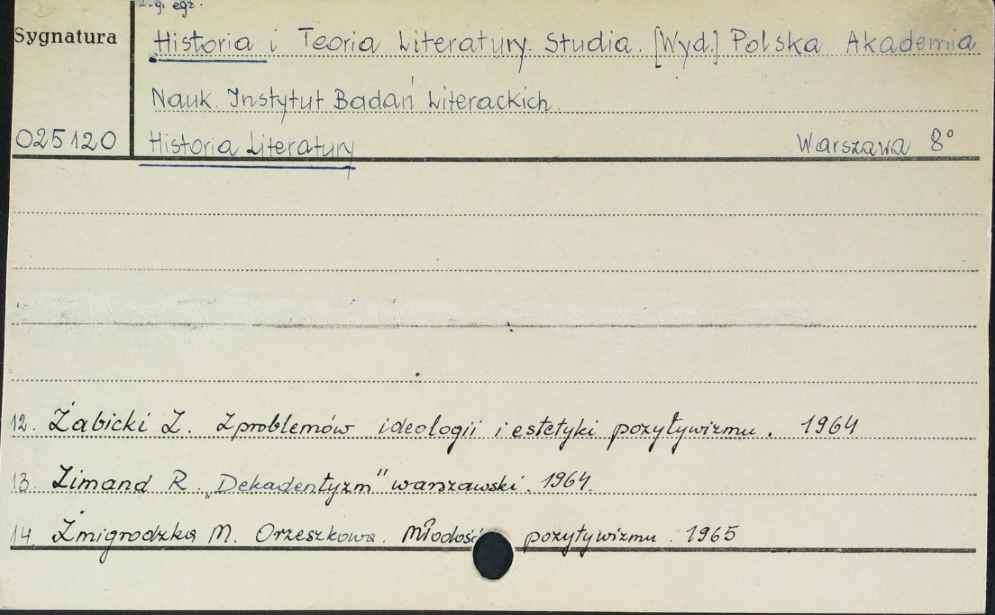 egz.
Sygnatura
Historia i Teoria Literatury. Studia. [Wyd.] Polska Akademia
Nauk. Instytut Badań Literackich.
025120 Historia Literatury Warszawa 8°
12. Żabicki Z. Z problemów ideologii i estetyki pozytywizmu. 1964
13. Zimand R. „Dekadentyzm" warszawski. 1964.
14. Żmigrodzka M. Orzeszkowa. Młodość pozytywizmu. 1965